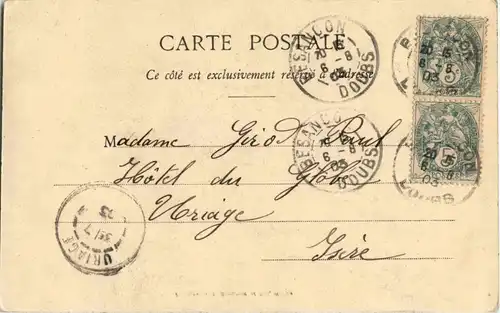 CARTE POSTALE
Ce côté est exclusivement réservé à l'adresse
BESANCON
DOUBS
BESANCON
DOUBS
Madame Girod Paul
Hôtel du Globe
Uriage
Isère
URIAGE